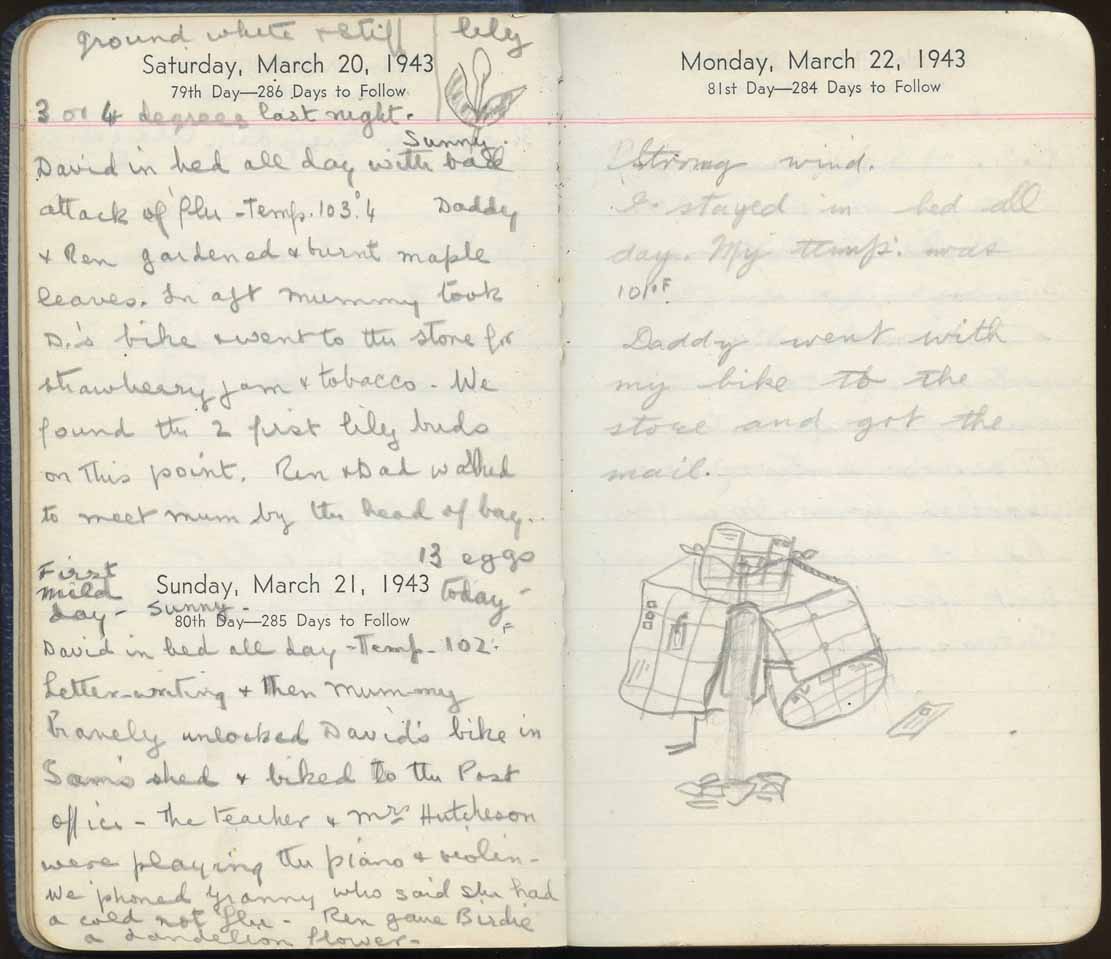 ground white + stiff
lily
Saturday, March 20, 1943
79th Day—286 Days to Follow
3 or 4 degrees last night.
Sunny.
David in bed all day with bad
attack of flu - Temp. 103.°4 Daddy
+ Ren gardened + burnt maple
leaves. In aft mummy took
D.'s bike + went to the store for
strawberry jam + tobacco - We
found the 2 first lily buds
on this point. Ren + Dad walked
to meet mum by the head of bay.
13 eggs
today -
First
mild
day - Sunny -
Sunday, March 21, 1943
80th Day—285 Days to Follow
David in bed all day - Temp - 102.F
Letter-writing + then mummy
bravely unlocked David's bike in
Sam's shed + biked to the Post
office - The teacher + Mrs Hutcheson
were playing the piano + violin -
We 'phoned Granny who said she had
a cold not flu - Ren gave Birdie
a dandelion flower -
Monday, March 22, 1943
81st Day—284 Days to Follow
Strong wind.
I stayed in bed all
day. My temp. was
101°F
Daddy went with
my bike to the
store and got the
mail.